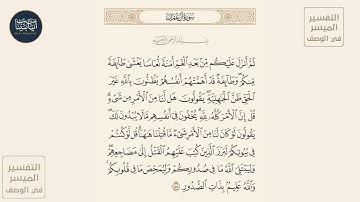 سورة آل عمران
بسم الله الرحمن الرحيم
ثُمَّ أَنزَلَ عَلَيْكُم مِّنۢ بَعْدِ ٱلْغَمِّ أَمَنَةً نُّعَاسًا يَغْشَىٰ طَآئِفَةً
مِّنكُمْ ۖ وَطَآئِفَةٌ قَدْ أَهَمَّتْهُمْ أَنفُسُهُمْ يَظُنُّونَ بِٱللَّهِ غَيْرَ
ٱلْحَقِّ ظَنَّ ٱلْجَٰهِلِيَّةِ ۖ يَقُولُونَ هَل لَّنَا مِنَ ٱلْأَمْرِ مِن شَىْءٍ ۗ
قُلْ إِنَّ ٱلْأَمْرَ كُلَّهُۥ لِلَّهِ ۗ يُخْفُونَ فِىٓ أَنفُسِهِم مَّا لَا يُبْدُونَ لَكَ ۖ
يَقُولُونَ لَوْ كَانَ لَنَا مِنَ ٱلْأَمْرِ شَىْءٌ مَّا قُتِلْنَا هَٰهُنَا ۗ قُل لَّوْ كُنتُمْ
فِى بُيُوتِكُمْ لَبَرَزَ ٱلَّذِينَ كُتِبَ عَلَيْهِمُ ٱلْقَتْلُ إِلَىٰ مَضَاجِعِهِمْ ۖ
وَلِيَبْتَلِىَ ٱللَّهُ مَا فِى صُدُورِكُمْ وَلِيُمَحِّصَ مَا فِى قُلُوبِكُمْ ۗ
وَٱللَّهُ عَلِيمٌۢ بِذَاتِ ٱلصُّدُورِ ١٥٤
التفسير
الميسر
في الوصف
التفسير
الميسر
في الوصف